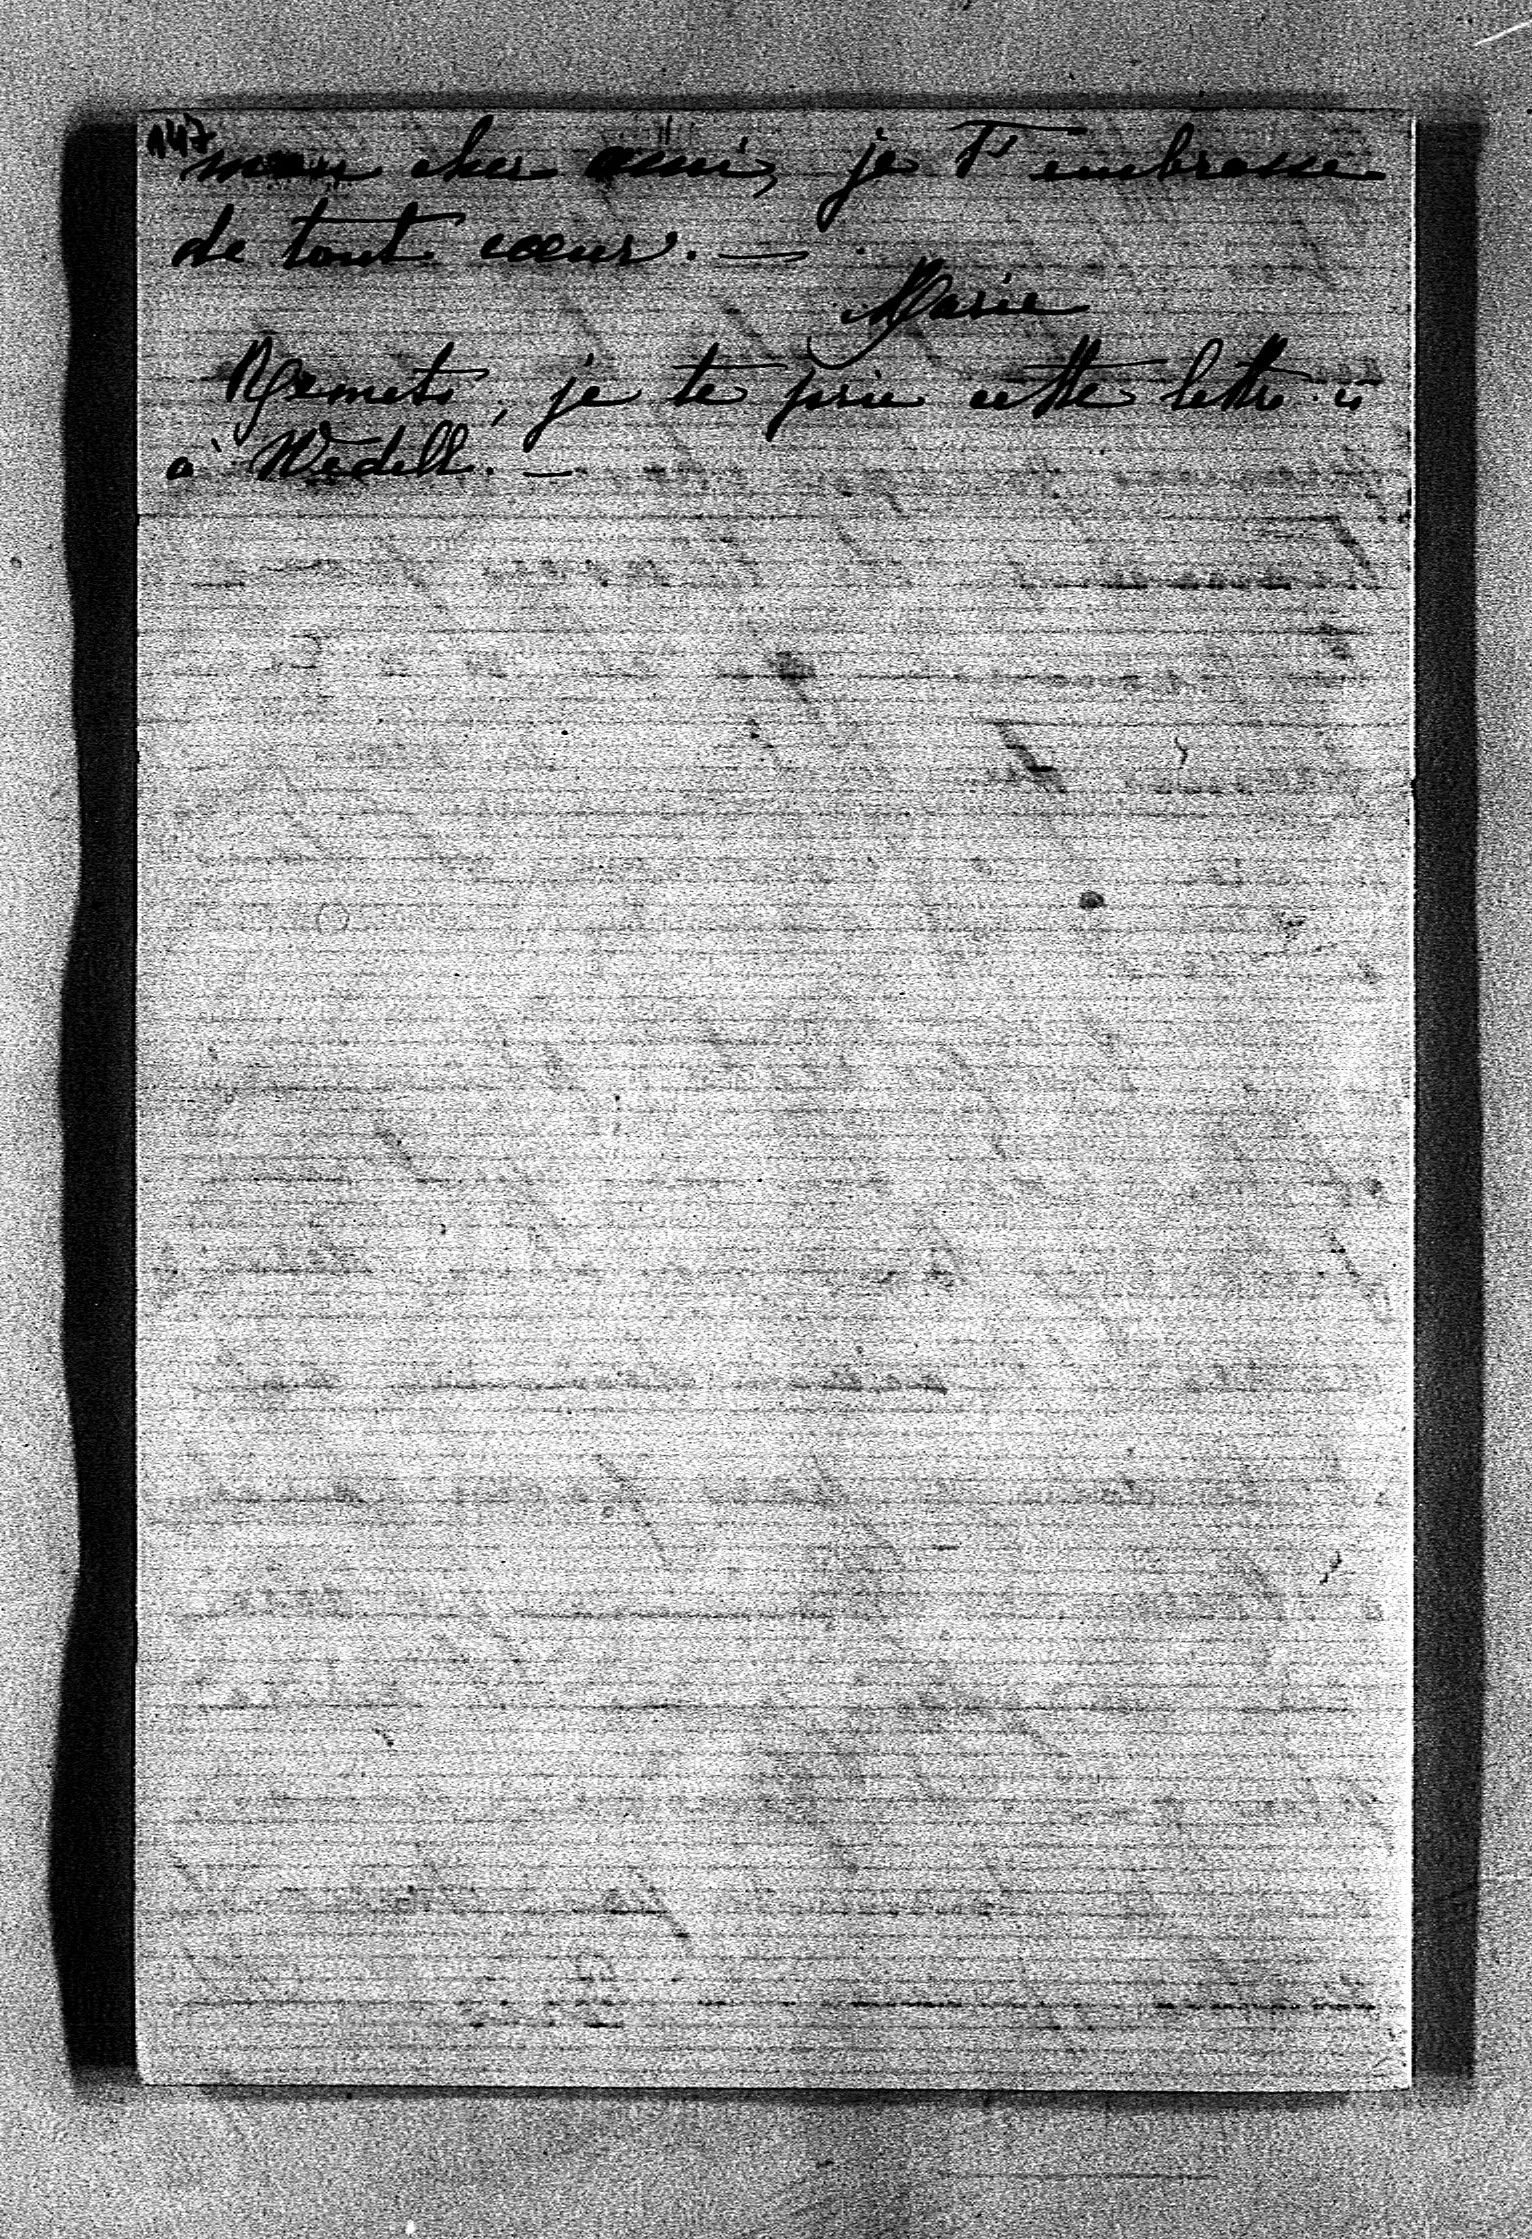 147
mon cher ami, je T'embrasse
de tout cœur. —
Marie
Remets, je te prie cette lettre
à Wedell. —